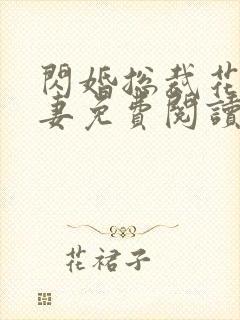 閃婚総裁花
妻免費閱讀
花裙子